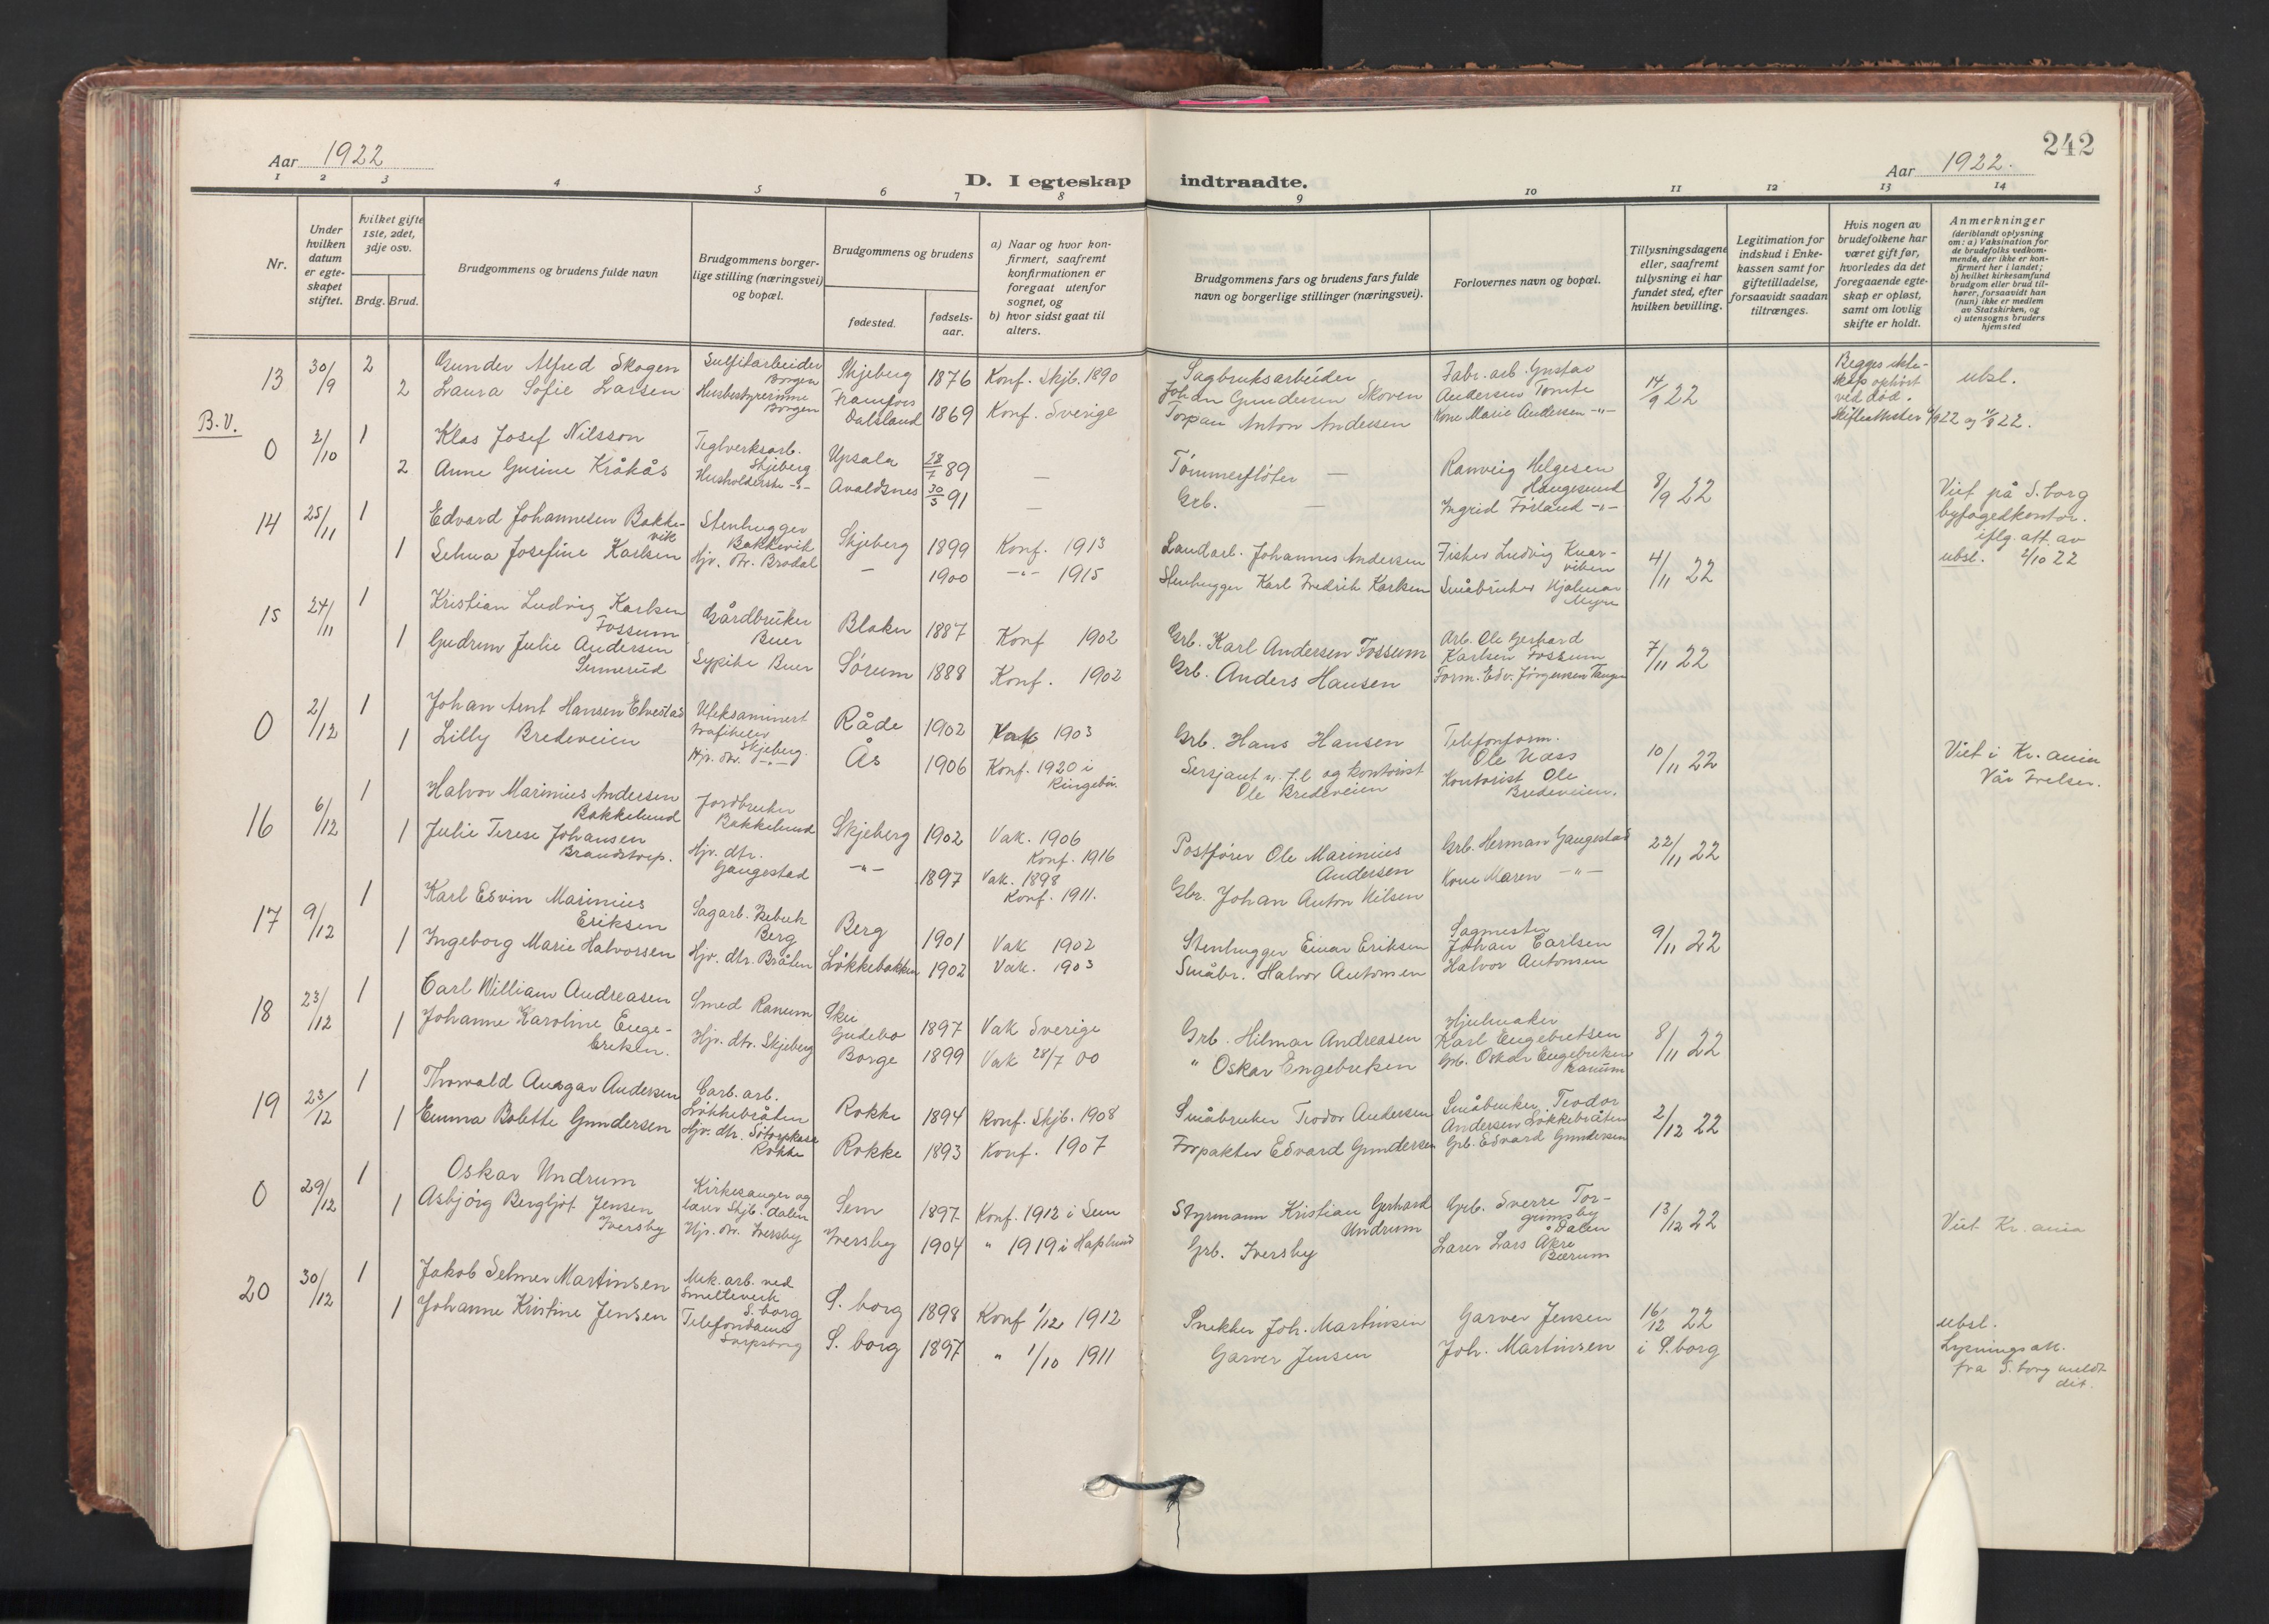 242
Aar 1922
D. I egteskap indtraadte.
Aar 1922.
1 2 3 4 5 6 7 8 9 10 11 12 13 14
Nr.
Under hvilken datum er egteskapet stiftet.
Hvilket gifte 1ste, 2det, 3dje osv.
Brdg. Brud.
Brudgommens og brudens fulde navn
Brudgommens borgerlige stilling (næringsvei) og bopæl.
Brudgommens og brudens
fødested.
fødselsaar.
a) Naar og hvor konfirmert, saafremt konfirmationen er foregaat utenfor sognet, og
b) hvor sidst gaat til alters.
Brudgommens fars og brudens fars fulde navn og borgerlige stillinger (næringsvei).
Forlovernes navn og bopæl.
Tillysningsdagene eller, saafremt tillysning ei har fundet sted, efter hvilken bevilling.
Legitimation for indskud i Enkekassen samt for giftetilladelse, forsaavidt saadan tiltrænges.
Hvis nogen av brudefolkene har været gift før, hvorledes da det foregaaende egteskap er opløst, samt om lovlig skifte er holdt.
Anmerkninger (deriblandt oplysning om: a) Vaksination for de brudefolks vedkommende, der ikke er konfirmert her i landet; b) hvilket kirkesamfund brudgom eller brud tilhører, forsaavidt han (hun) ikke er medlem av Statskirken, og c) utensogns bruders hjemsted
13 30/9 2 Gunder Alfred Skogen Sulfitarbeider Borgen Skjeberg 1876 Konf. Skjb. 1890 Sagbruksarbeider Johan Gundersen Skoven Fabr. arb. Gustav Andersen Tomte 14/9 22 Begges ekteskap ophört ved död. ubsl.
2 Laura Sofie Larsen Husbestyrerinne Borgen Dalsland 1869 Konf. Sverige Torpar Anton Andersen Kone Marie Andersen -"- Skifteattester
B.V.
0 2/10 1 Klas Josef Nilsson Teglverksarb. Skjeberg Upsala 28/7 89 — Tömmerflöter — Ranveig Helgesen Haugesund 8/9 22 Viet på S.borg byfogedkontor. iflg. att. av 2/10 22
2 Anne Gurine Kråkås Husholderske -"- Avaldsnes 30/3 91 — Grb. — Ingrid Förland -"- ubsl.
14 25/11 1 Edvard Johannesen Bakkevik Stenhugger Bakkevik Skjeberg 1899 Konf. 1913 Landarb. Johannes Andersen Fisker Ludvig Knarviken 4/11 22
1 Selma Josefine Karlsen Hjv. dtr. Brodal — 1900 -"- 1915 Stenhugger Karl Fredrik Karlsen Småbruker Hjalmar Myre
15 24/11 1 Kristian Ludvig Karlsen Fossum Gårdbruker Buer Blaker 1887 Konf 1902 Grb. Karl Andersen Fossum Arb. Ole Gerhard Karlsen Fossum 7/11 22
1 Gudrun Julie Andersen Sypike Buer Sörum 1888 Konf. 1902 Grb. Anders Hansen Form. Edv. Jörgensen
0 2/12 1 Johan Arnt Hansen Elvestad Uteksaminert trafikelev Skjeberg Råde 1902 Vak 1903 Grb. Hans Hansen Telefonform. Ole Næss 10/11 22 Viet i Kr.ania Vår Frelser.
1 Lilly Bredeveien Hjv. dtr. -"- Ås 1906 Konf. 1920 i Ringebu. Sersjant v. J.l. og kontorist Ole Bredeveien Kontorist Ole Bredeveien.
16 6/12 1 Halvor Marinius Andersen Bakkelund Jordbruker Bakkelund Skjeberg 1902 Vak. 1906 Konf. 1916 Postförer Ole Marinius Andersen Grb. Herman Gaugestad 22/11 22
1 Julie Terese Johansen Brandstorp. Hjv. dtr. Gaugestad -"- 1897 Vak. 1898 Konf. 1911. Gbr. Johan Anton Nilsen Kone Maren -"-
17 9/12 1 Karl Edvin Marinius Eriksen Sagarb. Berg Berg 1901 Vak 1902 Stenhugger Einar Eriksen Sagmester Johan Carlsen 9/11 22
1 Ingeborg Marie Halvorsen Hjv. dtr. Bråten Lökkebakken 1902 Vak. 1903 Småbr. Halvor Antonsen Halvor Antonsen
18 23/12 1 Carl William Andreasen Smed Ranum Gudebo 1897 Vak Sverige Grb. Hilmar Andreasen Hjulmaker Karl Engebretsen 8/11 22
1 Johanne Karoline Engebretsen. Hjv. dtr. Skjeberg Borge 1899 Vak 28/7 00 " Oskar Engebretsen Grb. Oskar Engebretsen Ranum
19 23/12 1 Thorvald Ansgar Andersen Carb. arb. Lökkebråten Rokke 1894 Konf. Skjb. 1908 Småbruker Teodor Andersen Småbruker Teodor Andersen Lökkebråten 2/12 22
1 Emma Bolette Gundersen Hjv. dtr. Rokke Rokke 1893 Konf. 1907 Forpakter Edvard Gundersen Grb. Edvard Gundersen
0 29/12 1 Oskar Undrum Kirkesanger og lærer Skjb.dalen Sem 1897 Konf. 1912 i Sem Styrmann Kristian Gerhard Undrum Grb. Sverre Torgimsby Dalen 13/12 22 Viet Kr.ania
1 Asbjörg Bergljot Jensen Iversby Hjv. dtr. Iversby Iversby 1904 " 1919 i Haslund Grb. Iversby Lærer Lars Åkre Bærum
20 30/12 1 Jakob Selmer Martinsen Mek. arb. ved Smelteverk S.borg S.borg 1898 Konf 1/12 1912 Snekker Joh. Martinsen Garver Jensen 16/12 22 i S.borg ubsl. Lysningsatt. fra S.borg meldt dit.
1 Johanne Kristine Jensen Telefondame Sarpsborg S.borg 1897 " 1/10 1911 Garver Jensen Joh. Martinsen